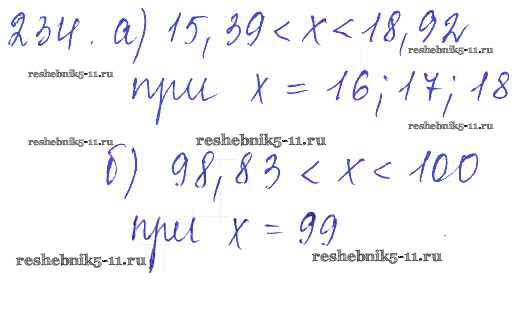 234. а) 15,39 < x < 18,92
reshebnik5-11.ru
reshebnik5-11.ru
при x = 16; 17; 18
reshebnik5-11.ru
reshebnik5-11.ru
reshebnik5-11.ru
б) 98,83 < x < 100
при x = 99
reshebnik5-11.ru
reshebnik5-11.ru